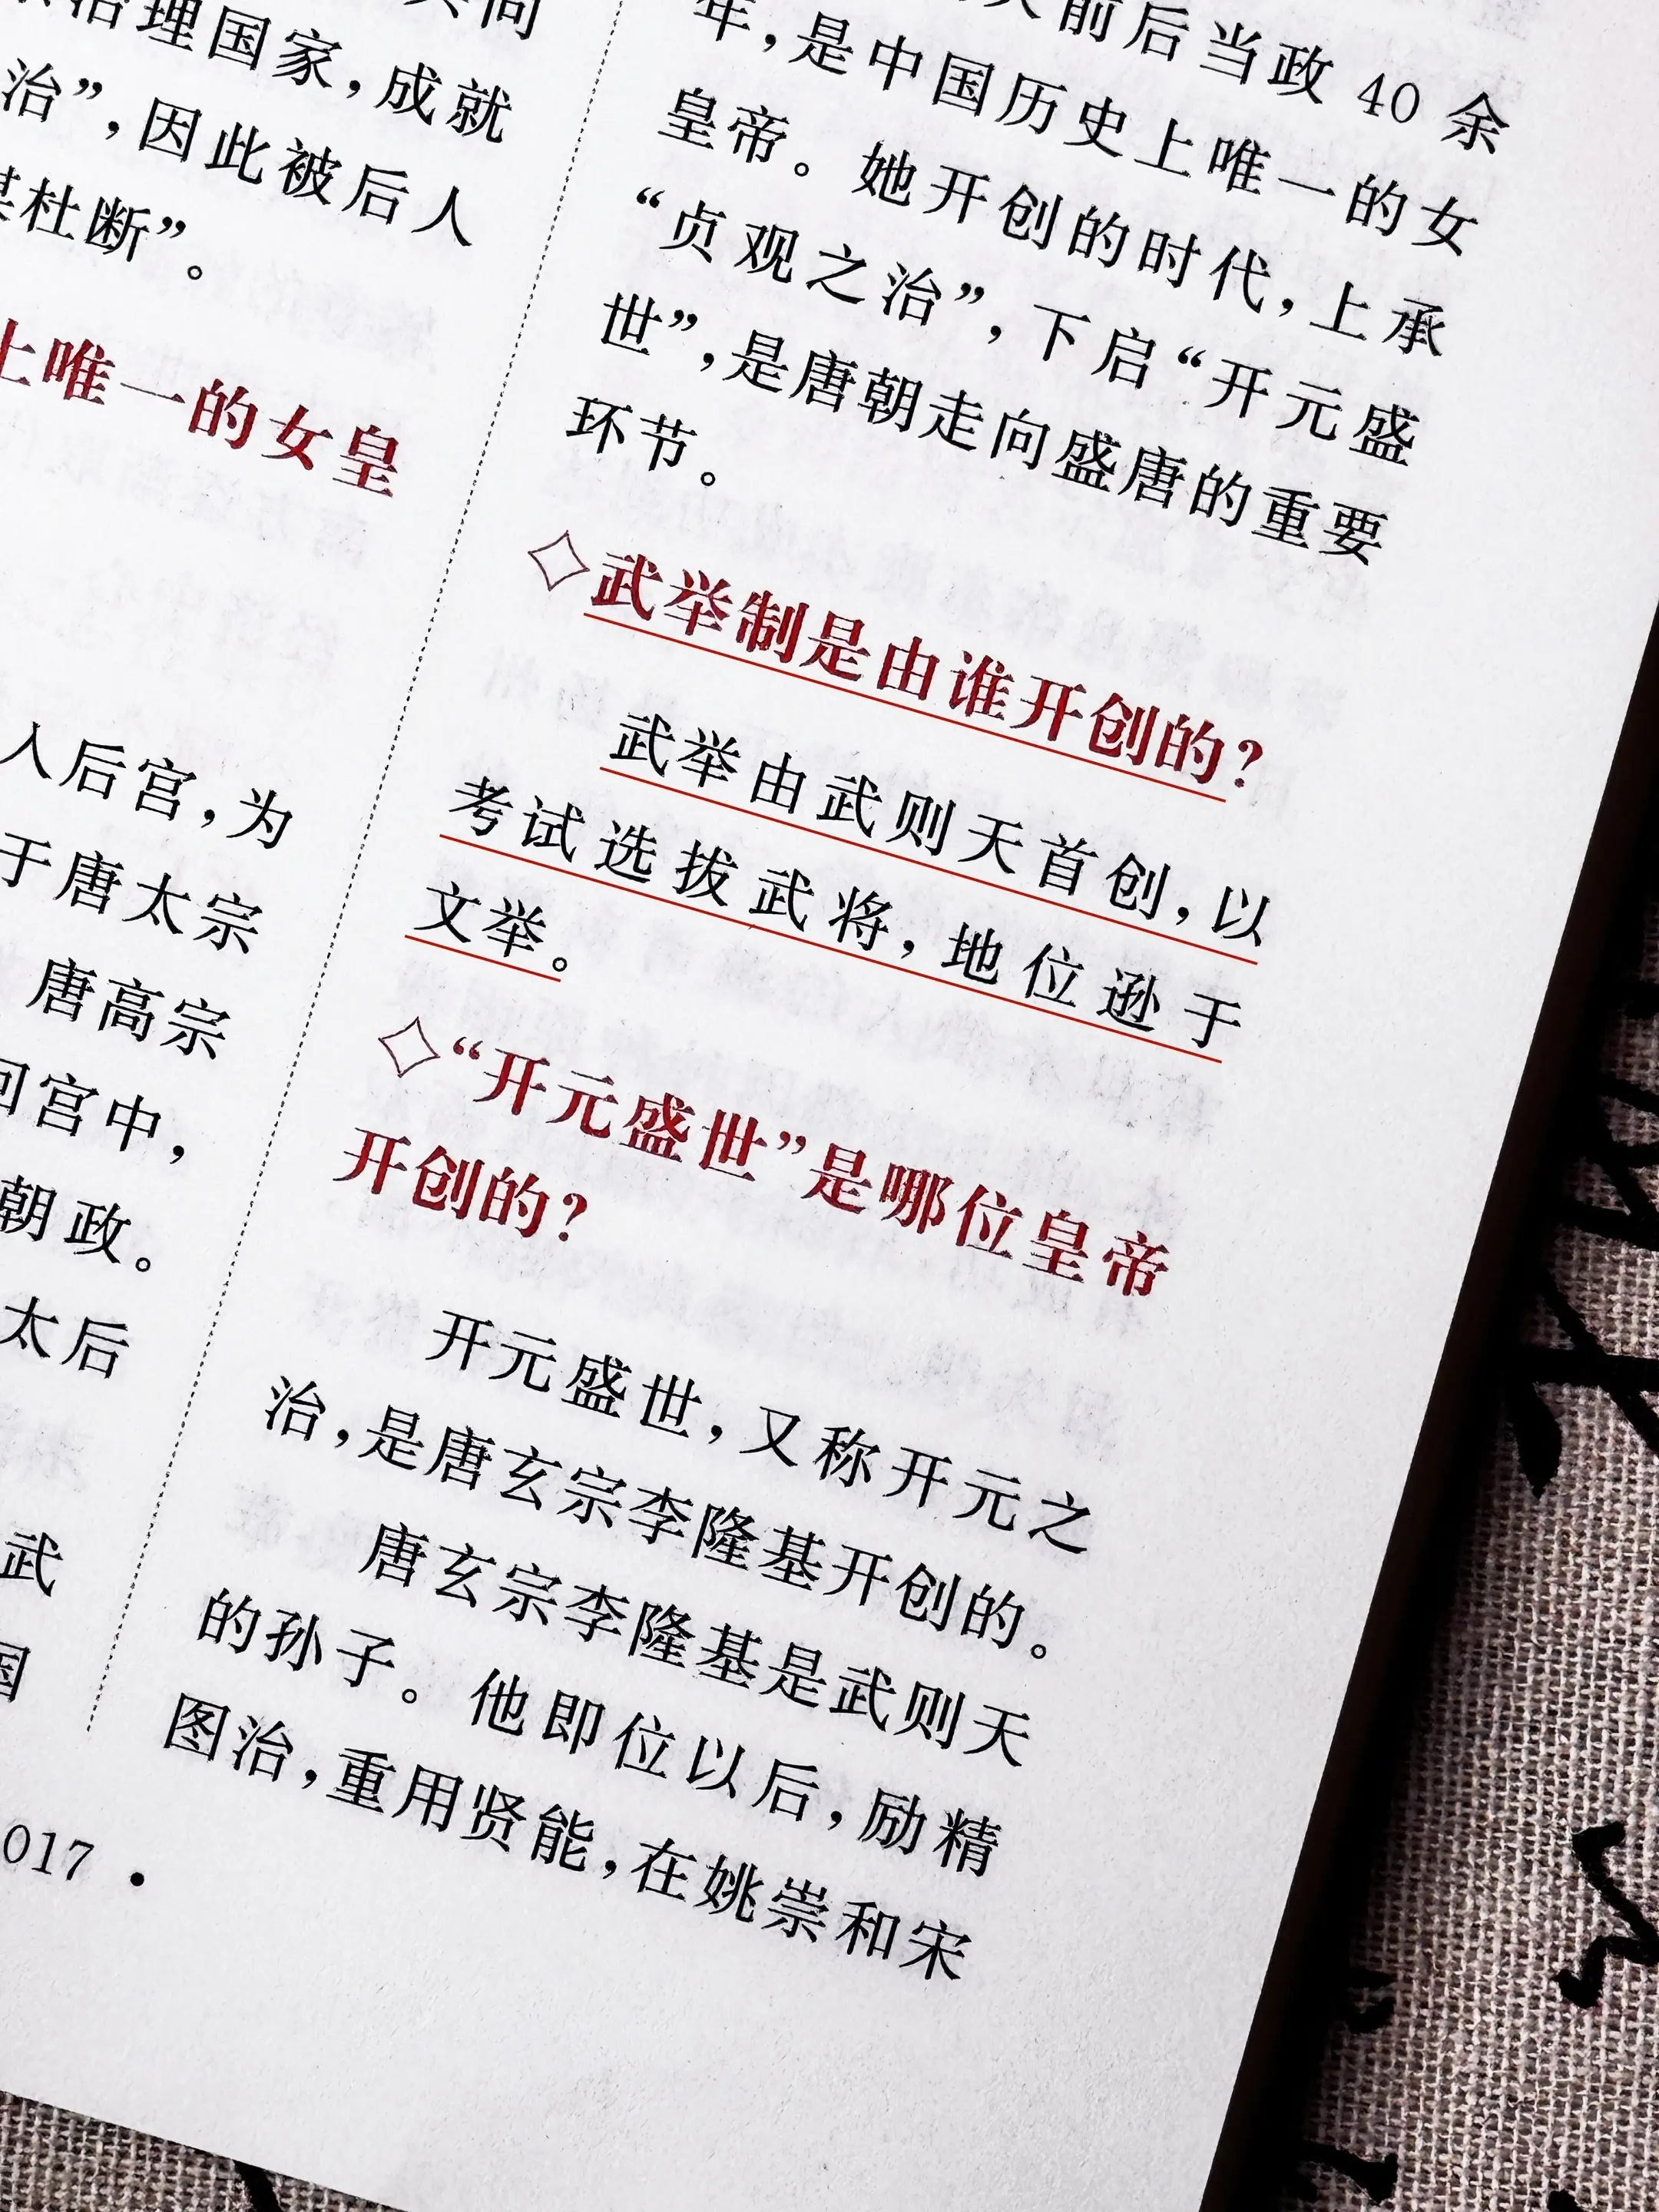 治理国家，成就
治”，因此被后人
杜断”。
上唯一的女皇
人后宫，为
于唐太宗
唐高宗
回宫中，
朝政。
太后
武
国
017 •
前后当政 40 余
年，是中国历史上唯一的女
皇帝。她开创的时代，上承
“贞观之治”，下启“开元盛
世”，是唐朝走向盛唐的重要
环节。
◇武举制是由谁开创的？
武举由武则天首创，以
考试选拔武将，地位逊于
文举。
◇“开元盛世”是哪位皇帝
开创的？
开元盛世，又称开元之
治，是唐玄宗李隆基开创的。
唐玄宗李隆基是武则天
的孙子。他即位以后，励精
图治，重用贤能，在姚崇和宋